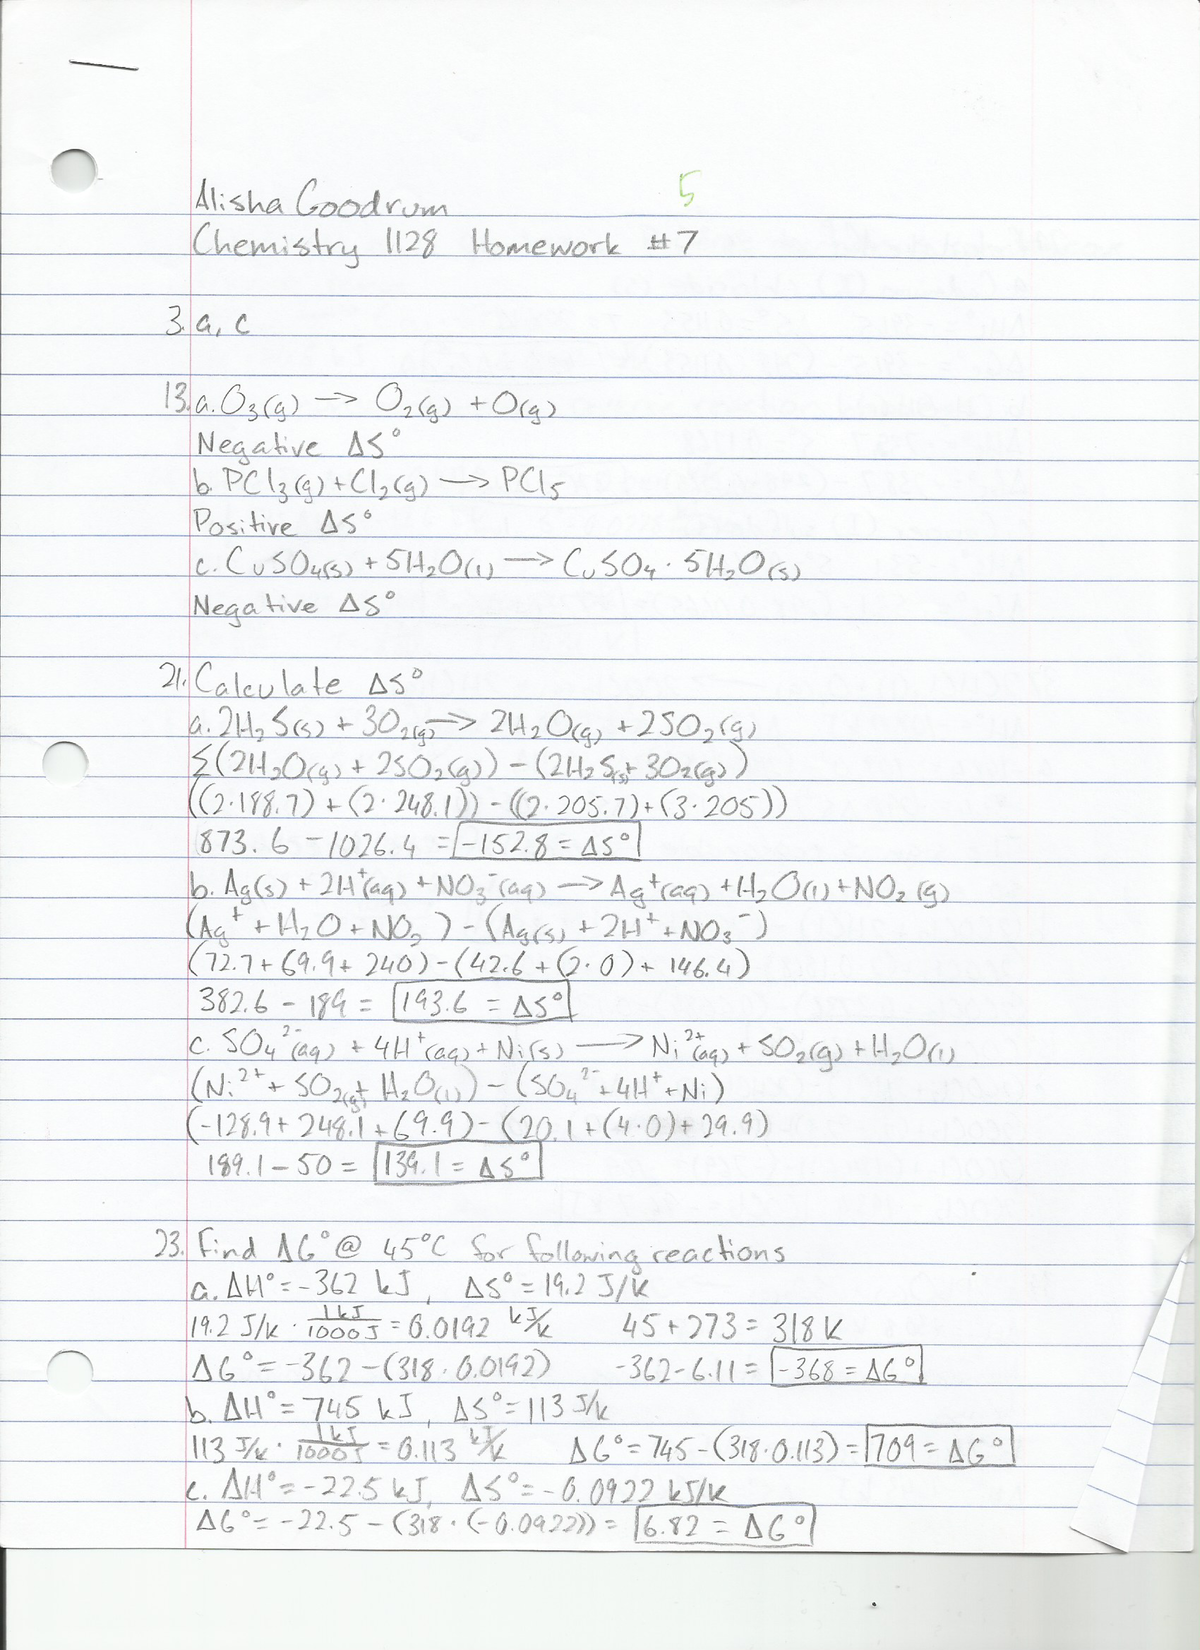 5
Alisha Goodrum
Chemistry 1128 Homework #7
3. a, c
13. a. O₃(g) → O₂(g) + O(g)
Negative ΔS°
b. PCl₃(g) + Cl₂(g) → PCl₅
Positive ΔS°
c. CuSO₄(s) + 5H₂O(l) → CuSO₄ · 5H₂O(s)
Negative ΔS°
21. Calculate ΔS°
a. 2H₂S(s) + 3O₂(g) → 2H₂O(g) + 2SO₂(g)
Σ(2H₂O(g) + 2SO₂(g)) - (2H₂S(s) + 3O₂(g))
((2·188.7) + (2·248.1)) - ((2·205.7) + (3·205))
873.6 - 1026.4 = -152.8 = ΔS°
b. Ag(s) + 2H⁺(aq) + NO₃⁻(aq) → Ag⁺(aq) + H₂O(l) + NO₂(g)
(Ag⁺ + H₂O + NO₂) - (Ag(s) + 2H⁺ + NO₃⁻)
(72.7 + 69.9 + 240) - (42.6 + (2·0) + 146.4)
382.6 - 189 = 193.6 = ΔS°
c. SO₄²⁻(aq) + 4H⁺(aq) + Ni(s) → Ni²⁺(aq) + SO₂(g) + H₂O(l)
(Ni²⁺ + SO₂(g) + H₂O(l)) - (SO₄²⁻ + 4H⁺ + Ni)
(-128.9 + 248.1 + 69.9) - (20.1 + (4·0) + 29.9)
189.1 - 50 = 139.1 = ΔS°
23. Find ΔG° @ 45°C for following reactions
a. ΔH° = -362 kJ, ΔS° = 19.2 J/K
19.2 J/K · 1kJ/1000J = 0.0192 kJ/K 45 + 273 = 318 K
ΔG° = -362 - (318 · 0.0192) -362 - 6.11 = -368 = ΔG°
b. ΔH° = 745 kJ, ΔS° = 113 J/K
113 J/K · 1kJ/1000J = 0.113 kJ/K ΔG° = 745 - (318·0.113) = 709 = ΔG°
c. ΔH° = -22.5 kJ, ΔS° = -0.0922 kJ/K
ΔG° = -22.5 - (318 · (-0.0922)) = 6.82 = ΔG°